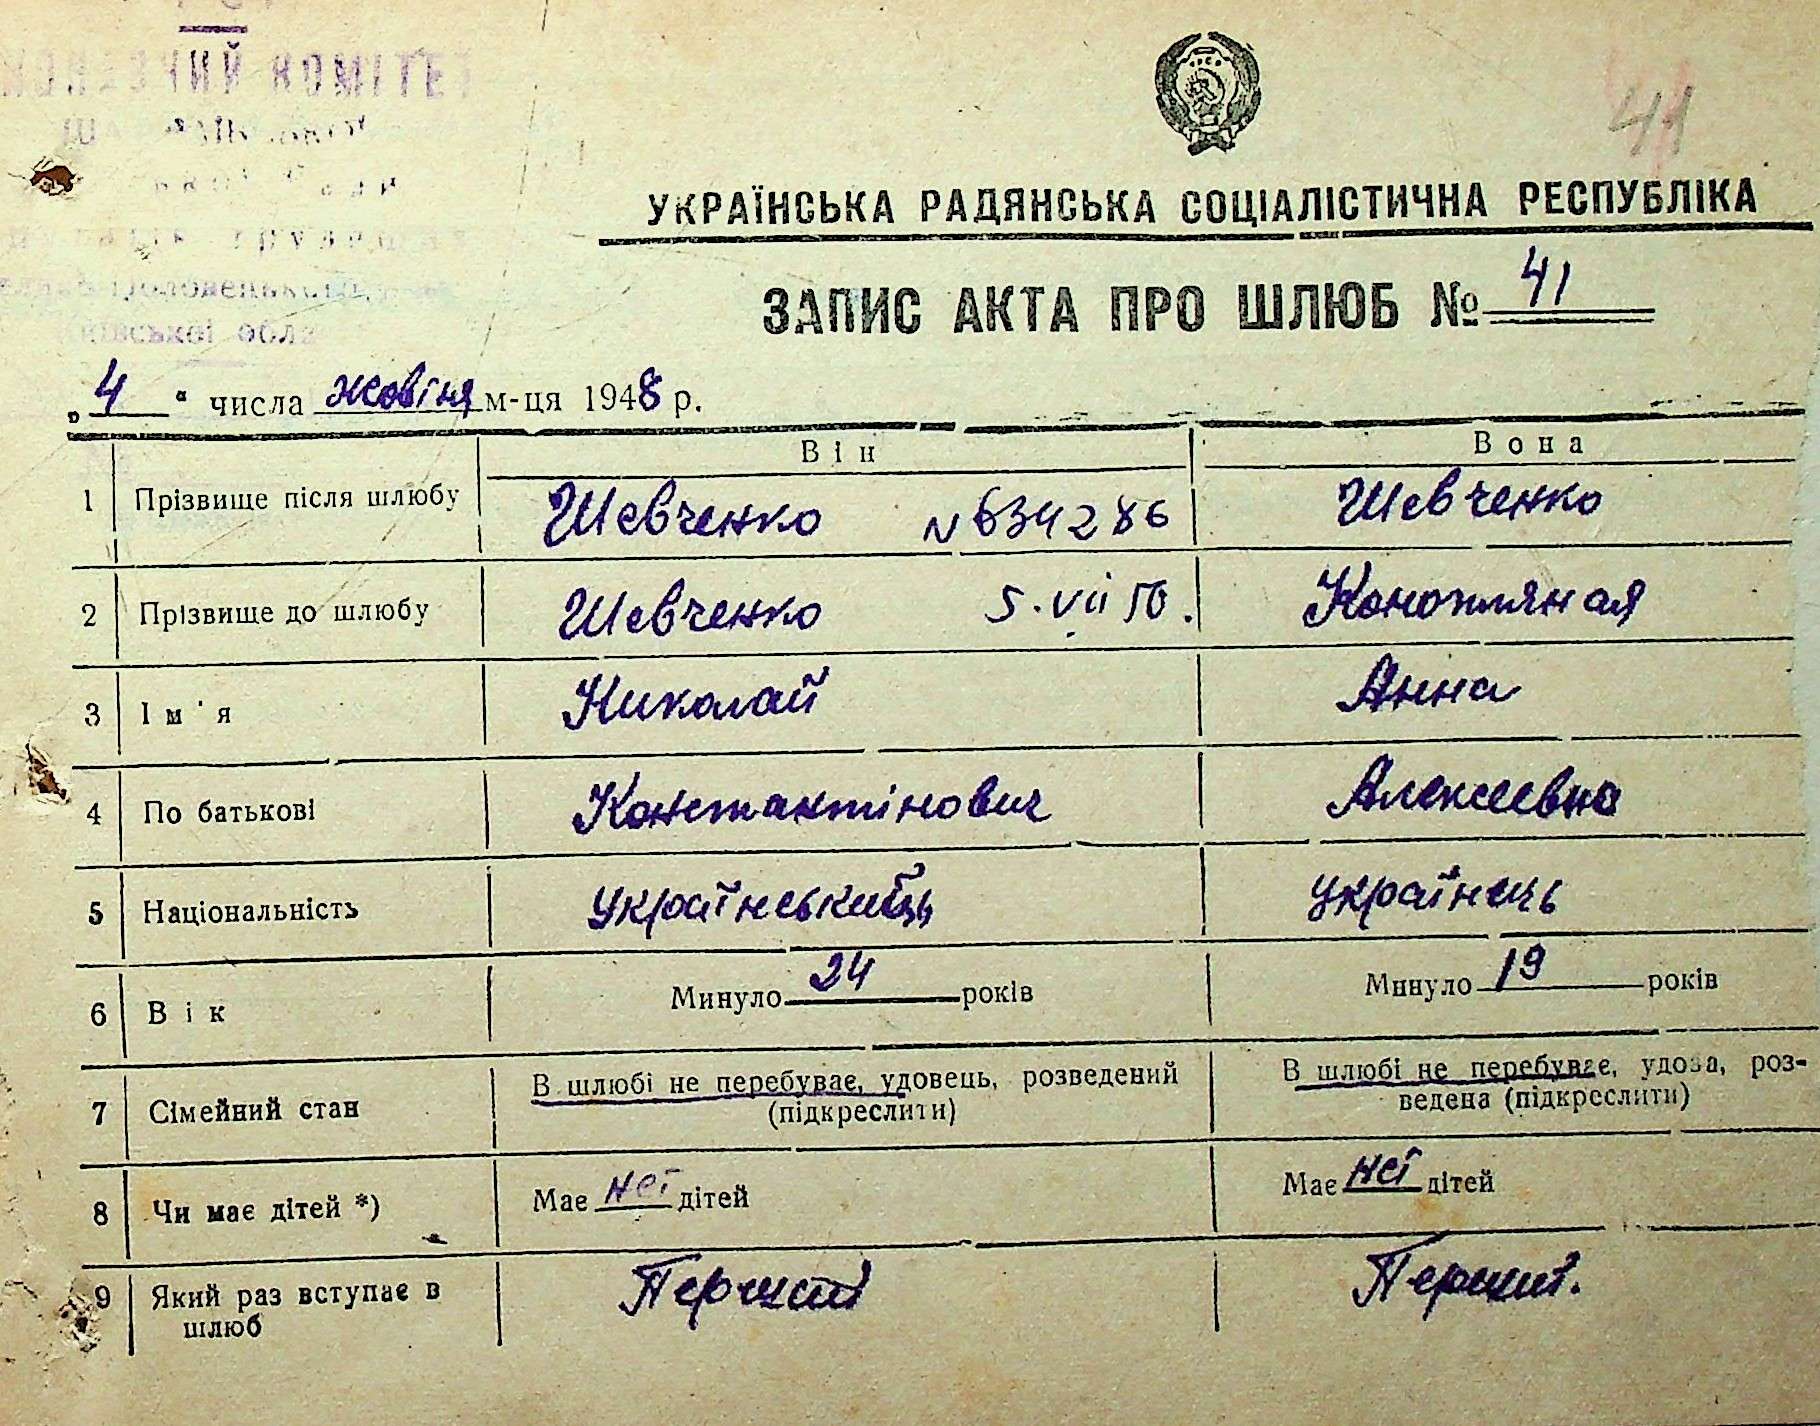 КОМІТЕТ
41
УКРАЇНСЬКА РАДЯНСЬКА СОЦІАЛІСТИЧНА РЕСПУБЛІКА
ЗАПИС АКТА ПРО ШЛЮБ № 41
„4“ числа жовтня м-ця 1948 р.
Він Вона
1 Прізвище після шлюбу Шевченко N 634286 Шевченко
2 Прізвище до шлюбу Шевченко 5.VII 50. Конопляная
3 Ім'я Николай Анна
4 По батькові Константінович Алексеевна
5 Національність українець
6 Вік Минуло 24 років Минуло 19 років
7 Сімейний стан В шлюбі не перебуває, удовець, розведений (підкреслити) В шлюбі не перебуває, удова, роз-
ведена (підкреслити)
8 Чи має дітей *) Має неї дітей Має неї дітей
9 Який раз вступає в Перший Перший.
шлюб